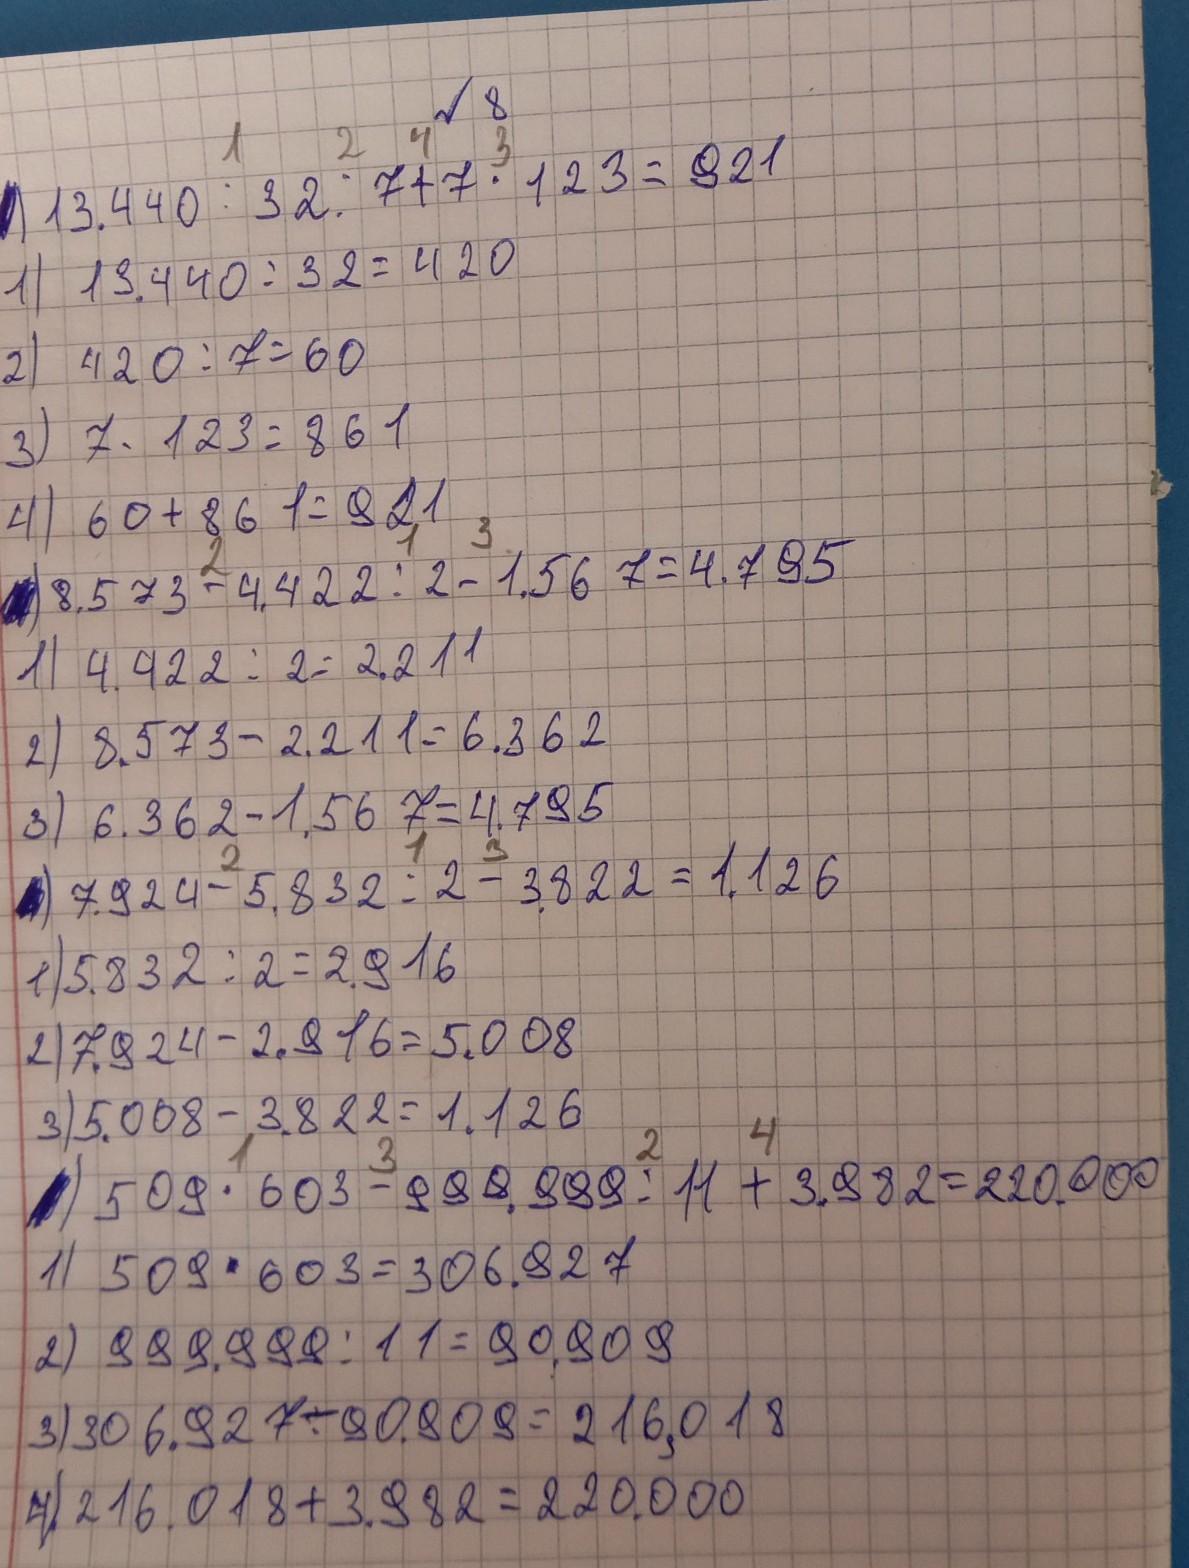 √ 8
1 2 4 3
13.440 : 32 : 7 + 7 · 123 = 921
1) 13.440 : 32 = 420
2) 420 : 7 = 60
3) 7 · 123 = 861
4) 60 + 861 = 921
2 1 3
8.573 - 4.422 : 2 - 1.567 = 4.795
1) 4.422 : 2 = 2.211
2) 8.573 - 2.211 = 6.362
3) 6.362 - 1.567 = 4.795
2 1 3
7.924 - 5.832 : 2 - 3.822 = 1.126
1) 5.832 : 2 = 2.916
2) 7.924 - 2.916 = 5.008
3) 5.008 - 3.822 = 1.126
1 3 2 4
509 · 603 - 999.999 : 11 + 3.982 = 220.000
1) 509 · 603 = 306.927
2) 999.999 : 11 = 90.909
3) 306.927 - 90.909 = 216.018
4) 216.018 + 3.982 = 220.000